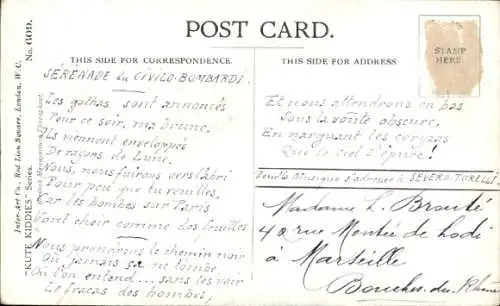 POST CARD.
THIS SIDE FOR CORRESPONDENCE.
SÉRÉNADE du CIVILO-BOMBARDÉ.
Les gothas sont annoncés
Pour ce soir, ma brune,
Ils viennent enveloppés
De rayons de Lune.
Nous, nous fuirons vers l'abri
Pour peu que tu veuilles,
Car les bombes sur Paris
Vont choir comme des feuilles
Nous prendrons le chemin noir
Où jamais ça ne tombe,
Où l'on entend... sans les voir
Le fracas des bombes,
THIS SIDE FOR ADDRESS
STAMP
HERE.
Et nous attendrons en bas
Sous la voûte obscure,
En narguant les
Que le ciel s'épure!
Pour la Musique s'adresser à SEVERO-TORELLI
Madame L. Brouté
42 rue Montée de Lodi
à Marseille
Bouches du Rhône
"KUTE KIDDIES" Series. No. 609.
Inter-Art Co., Red Lion Square, London, W.C.